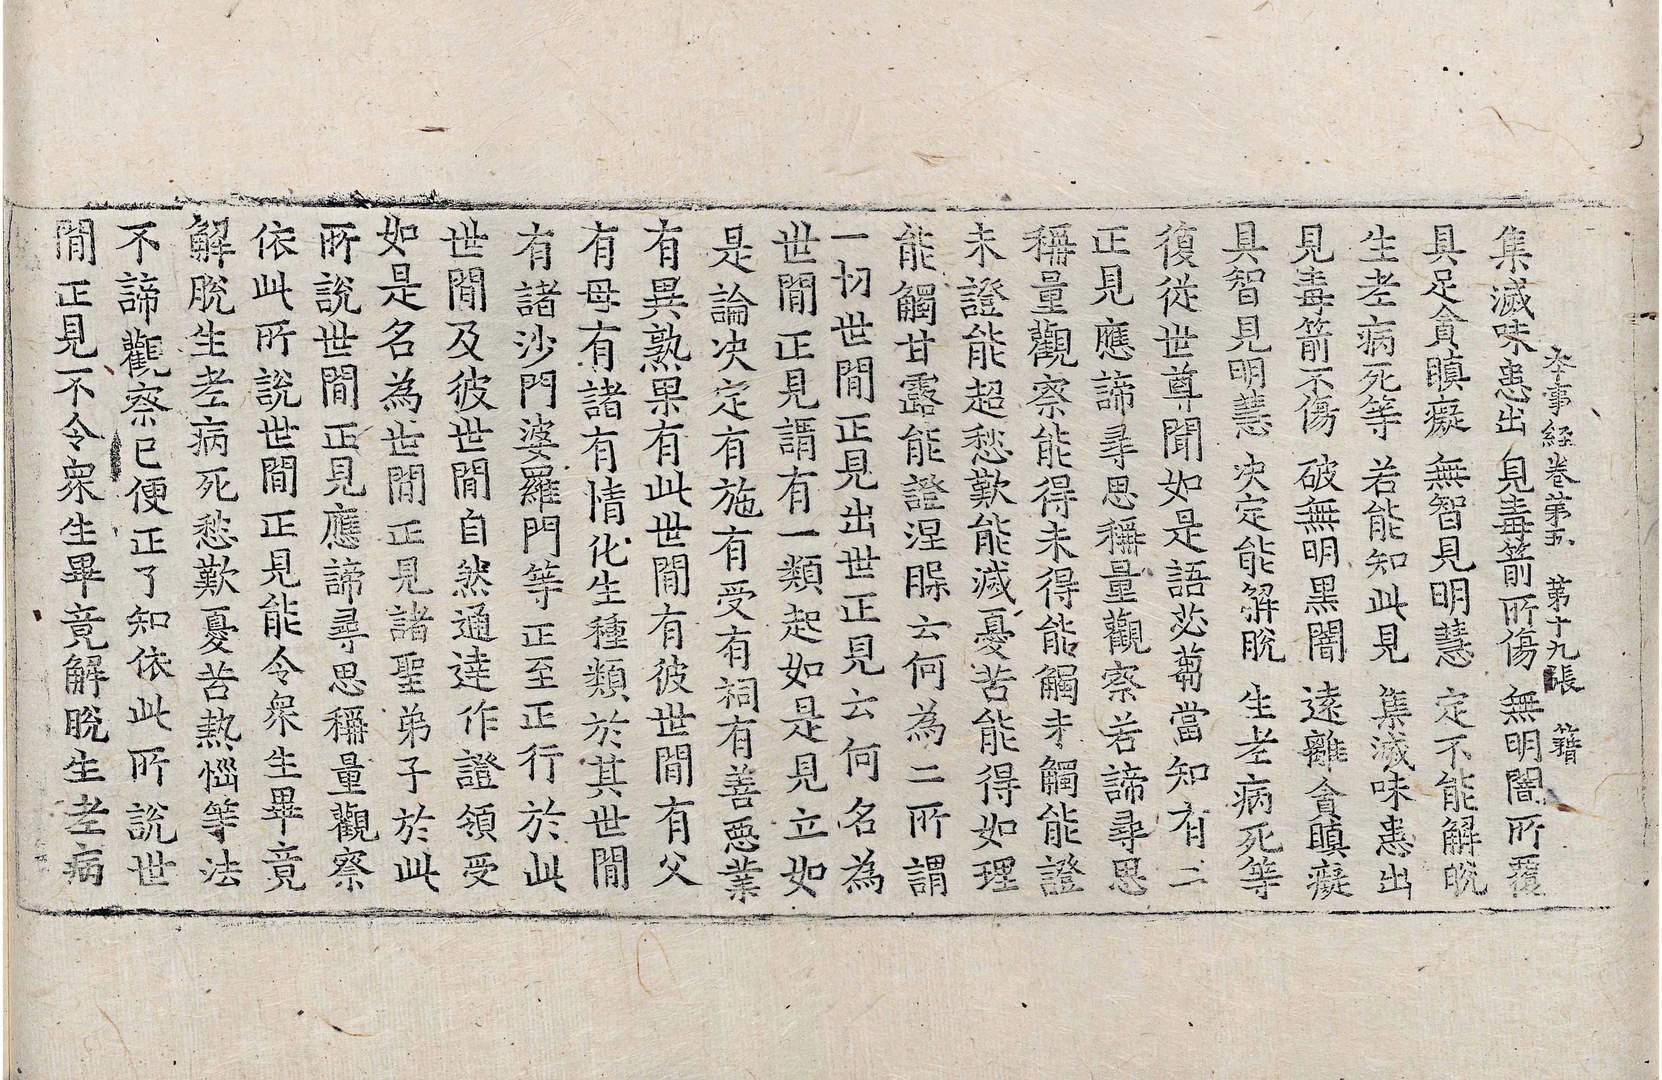 本事経卷第五 第十九張 籍
集滅味患出 見毒箭所傷 無明闇所覆
具足貪瞋癡 無智見明慧 定不能解脫
生老病死等 若能知此見 集滅味患出
見毒箭不傷 破無明黑闇 遠離貪瞋癡
具智見明慧 決定能解脫 生老病死等
復從世尊聞如是語苾蒭當知有二
正見應諦尋思稱量觀察若諦尋思
稱量觀察能得未得能觸未觸能證
未證能超愁歎能滅憂苦能得如理
能觸甘露能證涅槃云何為二所謂
一切世閒正見出世正見云何名為
世閒正見謂有一類起如是見立如
是論決定有施有受有祠有善惡業
有異熟果有此世閒有彼世閒有父
有母有諸有情化生種類於其世閒
有諸沙門婆羅門等正至正行於此
世閒及彼世閒自然通達作證領受
如是名為世閒正見諸聖弟子於此
所說世閒正見應諦尋思稱量觀察
依此所說世閒正見能令衆生畢竟
解脫生老病死愁歎憂苦熱惱等法
不諦觀察已便正了知依此所說世
閒正見不令衆生畢竟解脫生老病